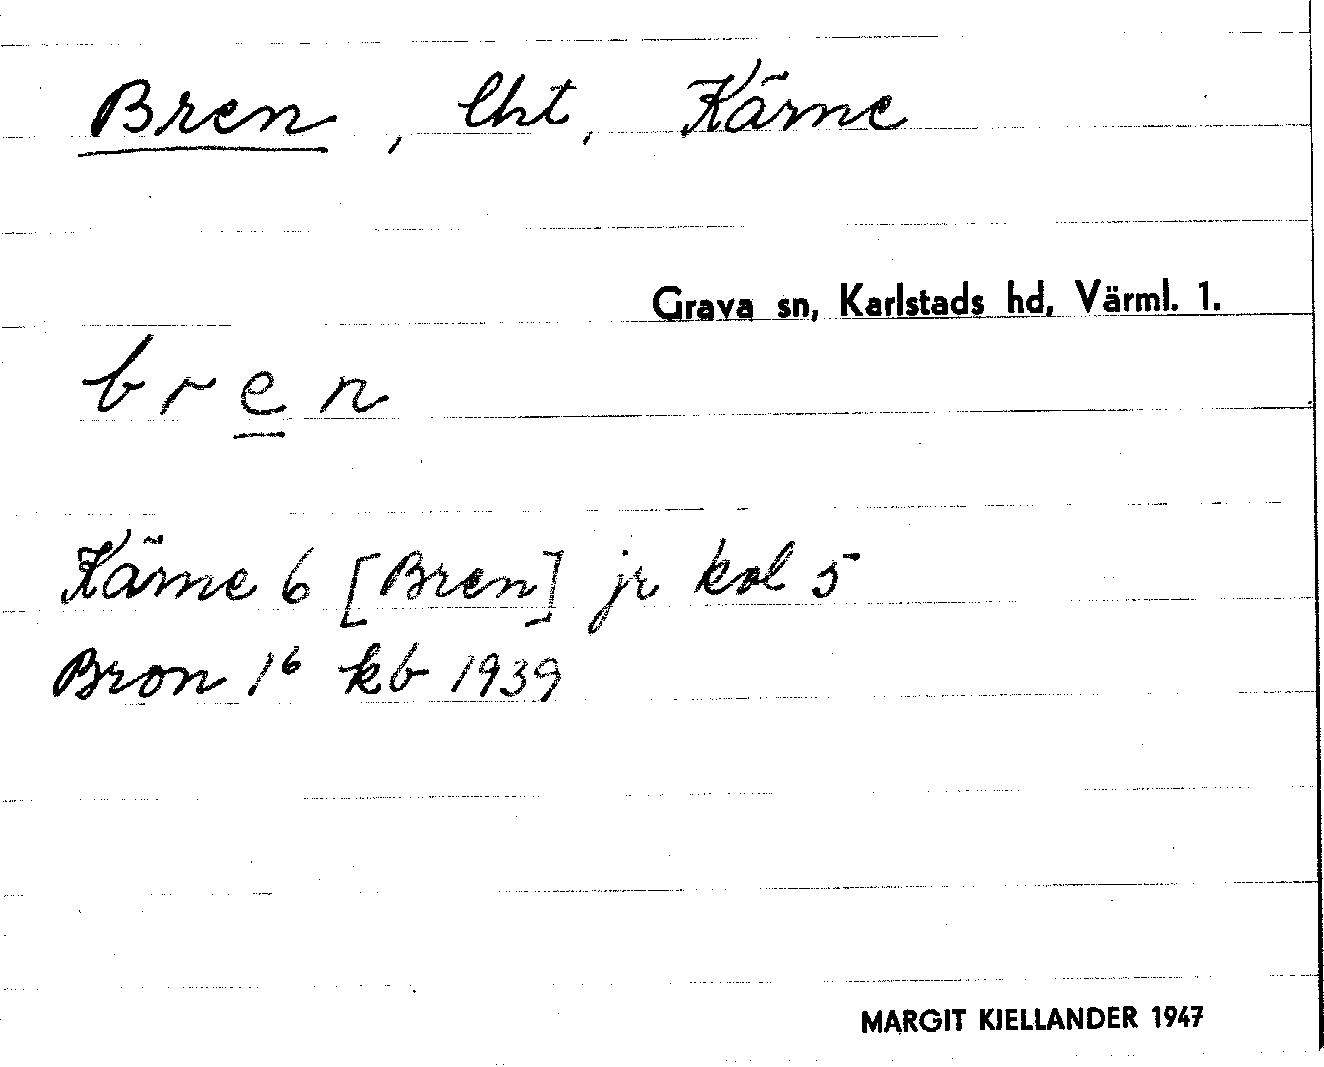 Bren, lht, Kärne
Grava sn, Karlstads hd, Värml. 1.
bren
Kärne 6 [Bren] jr kol 5
Bron 1⁶ kb 1939
MARGIT KJELLANDER 1947